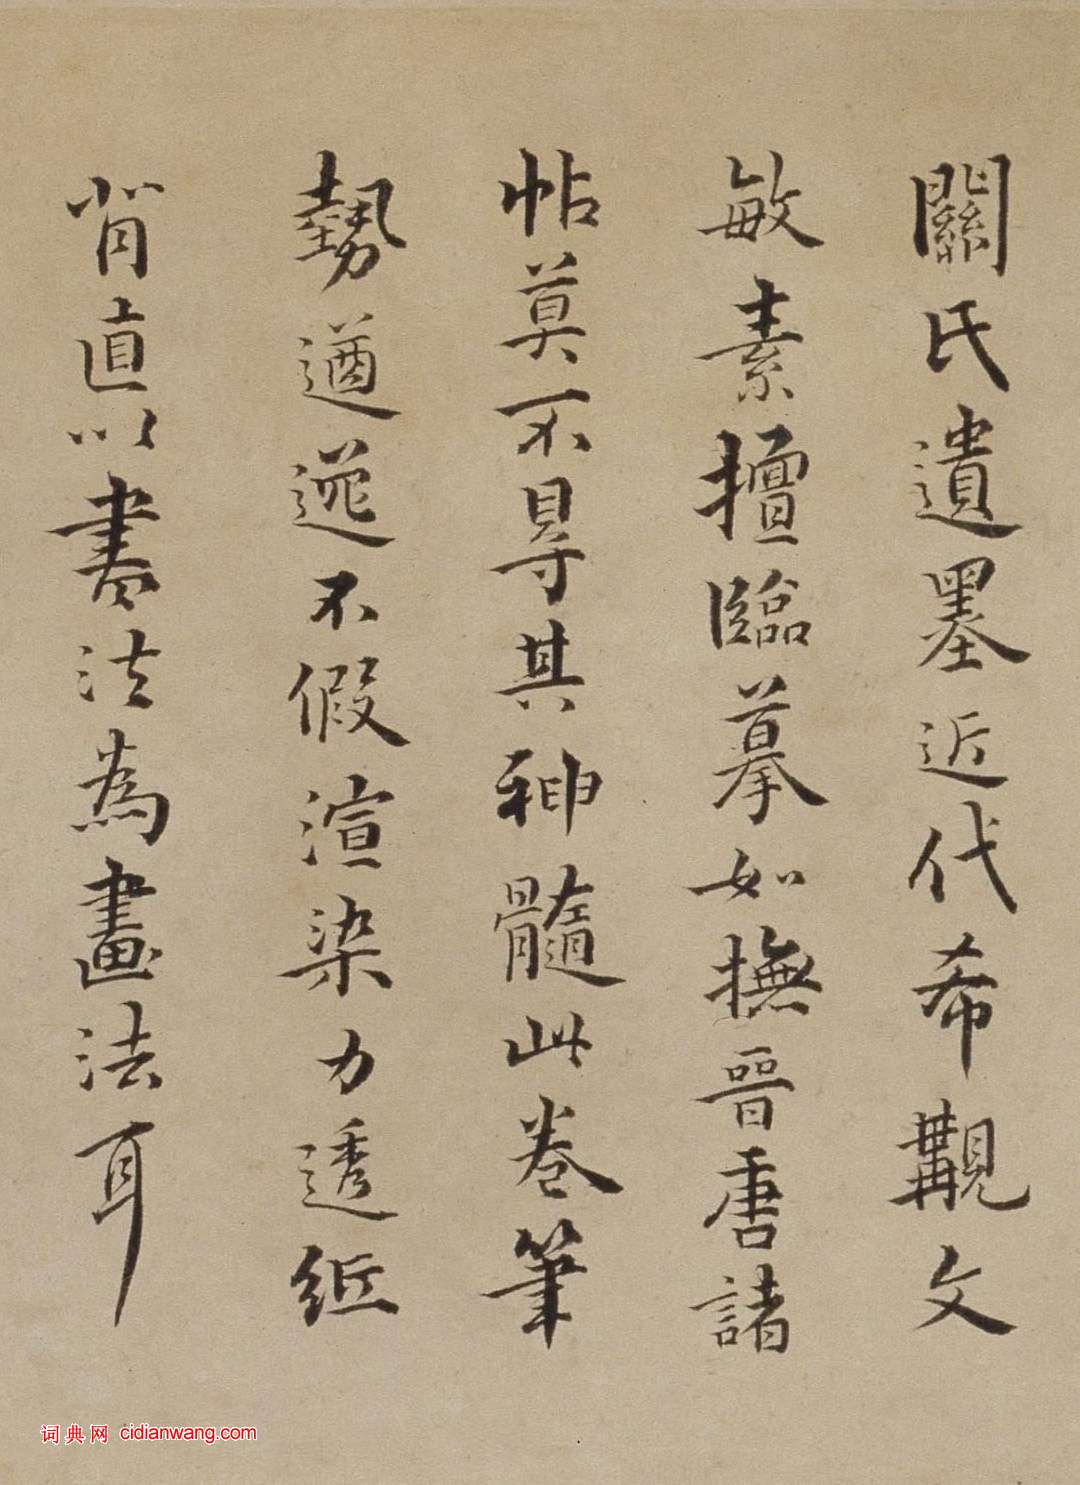 關氏遺墨近代希覯文
敏素擅臨摹如撫晉唐諸
帖莫不㝵其神髓此卷筆
勢遒逸不假渲染力透紙
背直以書法為畫法耳
词典网 cidianwang.com